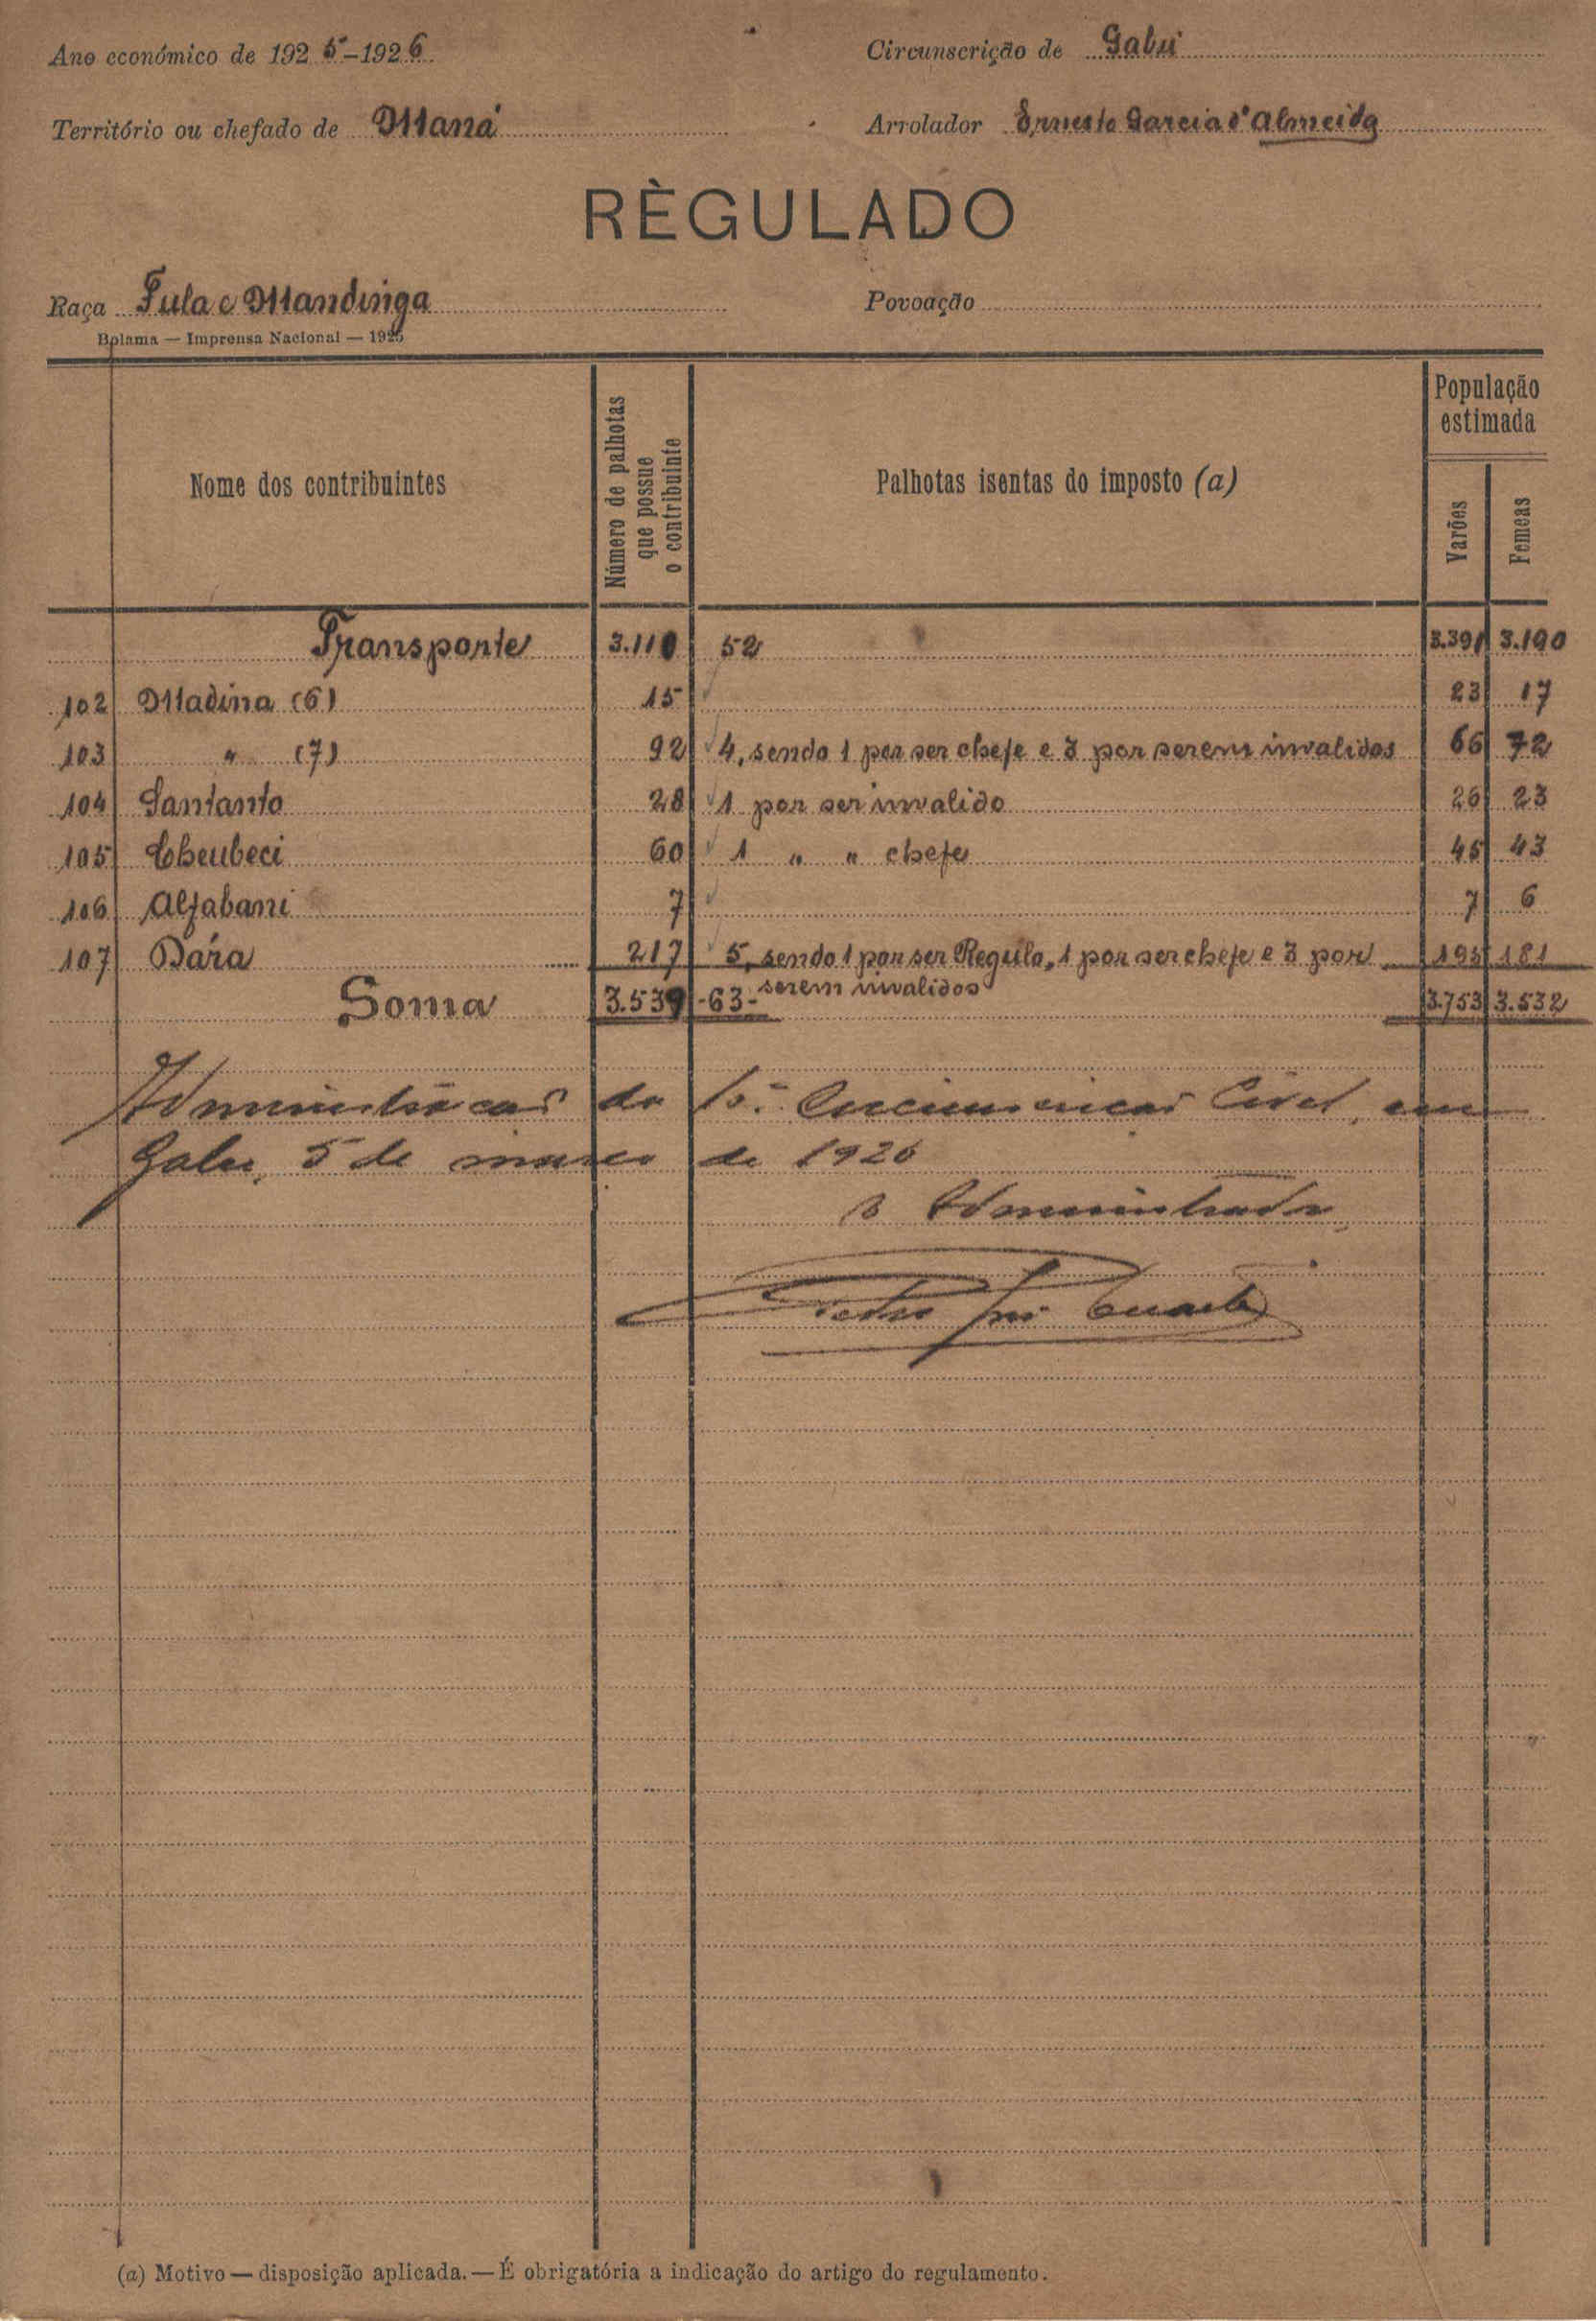 Ano económico de 1925-1926
Circunscrição de Gabú
Território ou chefado de Maná
Arrolador Ernesto Garcia d'Almeida
RÈGULADO
Raça Fula e Mandinga
Povoação
Bolama — Imprensa Nacional — 1925
Nome dos contribuintes
Número de palhotas que possue o contribuinte
Palhotas isentas do imposto (a)
População estimada
Varões
Femeas
Transporte 3.110 52 3.391 3.190
102 Madina (6) 15 23 17
103 " (7) 92 4, sendo 1 por ser chefe e 3 por serem invalidos 66 72
104 Santanto 28 1 por ser invalido 26 23
105 Cheubeci 60 1 " " chefe 45 43
106 Aljabani 7 7 6
107 Dára 217 5, sendo 1 por ser Regulo, 1 por ser chefe e 3 por 195 181
serem invalidos
Soma 3.539 -63- 3.753 3.532
Administração da Circunscrição Civil, em
Gabu, 5 de março de 1926
O Administrador
(a) Motivo — disposição aplicada. — É obrigatória a indicação do artigo do regulamento.